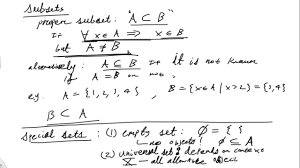 Subsets
proper subset: "A ⊂ B"
If ∀ x ∈ A ⟹ x ∈ B
but A ≠ B
alternatively: A ⊆ B If it is not known
if A = B or not.
eg. A = {1, 2, 3, 4}, B = {x ∈ A | x > 2} = {3, 4}
B ⊂ A
Special sets: (1) empty set: ∅ = { }
no objects! ∅ ⊆ A
(2) universal set: depends on context
X — all allowable objects